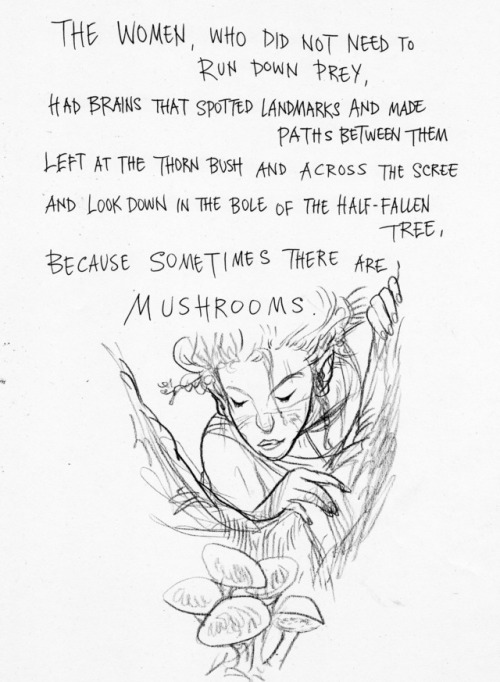 THE WOMEN, WHO DID NOT NEED TO
RUN DOWN PREY,
HAD BRAINS THAT SPOTTED LANDMARKS AND MADE
PATHS BETWEEN THEM
LEFT AT THE THORN BUSH AND ACROSS THE SCREE
AND LOOK DOWN IN THE BOLE OF THE HALF-FALLEN
TREE,
BECAUSE SOMETIMES THERE ARE
MUSHROOMS.